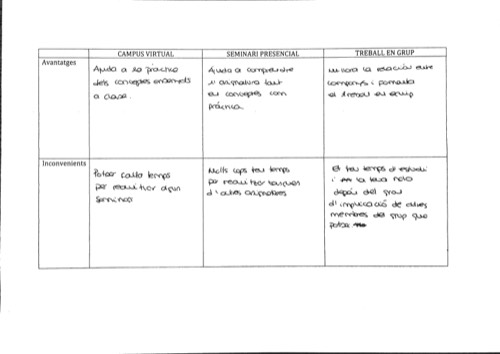 CAMPUS VIRTUAL
SEMINARI PRESENCIAL
TREBALL EN GRUP
Avantatges
Ajuda a la practica
dels conceptes ensenyats
a classe.
Ajuda a comprendre
l'assignatura tant
en conceptes com
pràctica.
Millora la relació entre
companys i fomenta
el treball en equip
Inconvenients
Potser falta temps
per realitzar algun
seminari
Molts cops teu temps
per realitzar tasques
d'altres assignatures
El teu temps d'estudi
i la teva nota
depèn del grau
d'implicació de altres
membres del grup que
potser